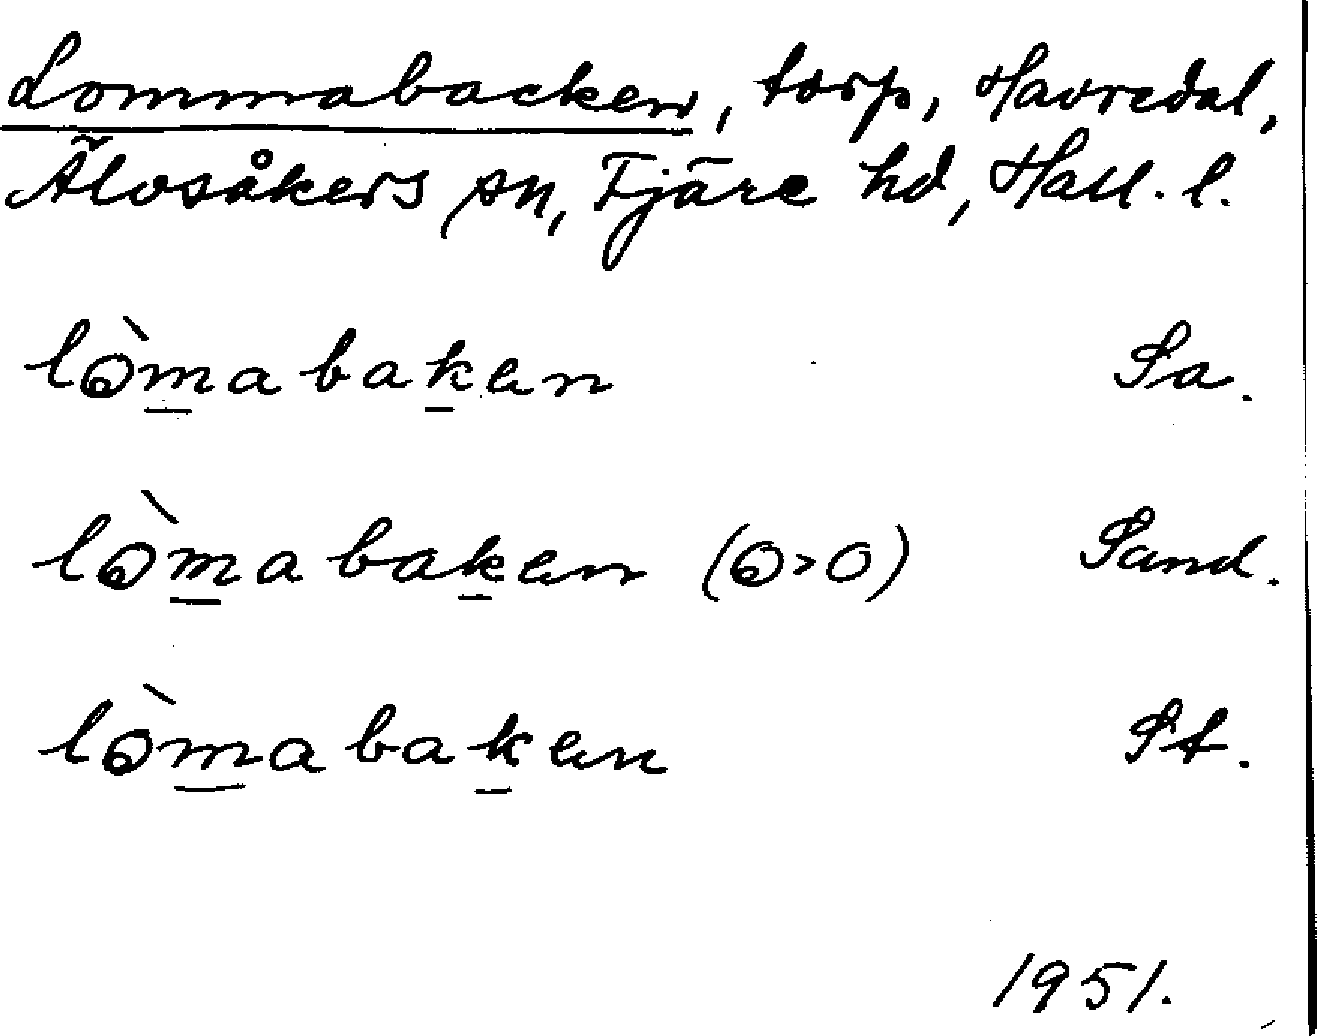 Lommabacken, torp, Havredal,
Älvsåkers sn, Fjäre hd, Hall. l.
lòmabaken Sa.
lòmabaken (o>o) Sand.
lòmabaken St.
1951.